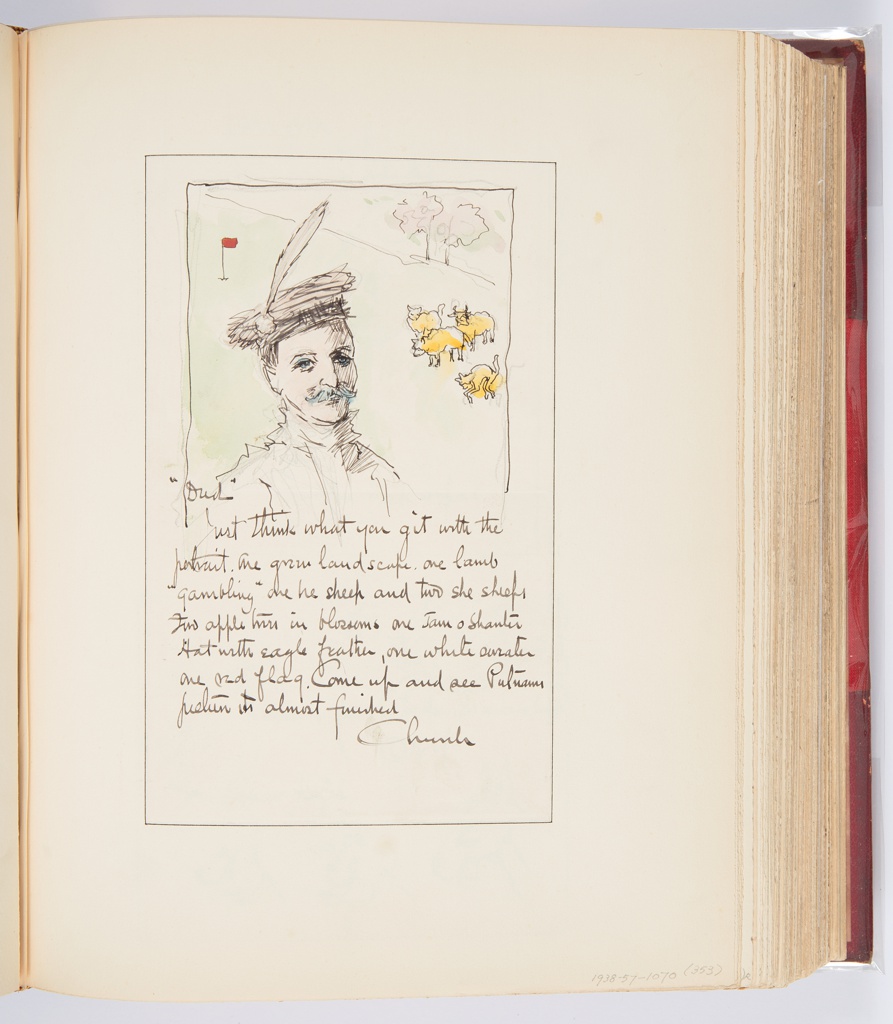 "Dud"
Just think what you git with the
portrait. One green landscape. one lamb
"gambling" one he sheep and two she sheeps
Two apple trees in blossoms one Tam o Shanter
Hat with eagle feather, one white sweater
one red flag. Come up and see Putnams
picture its almost finished
Church
1938-57-1070 (353)